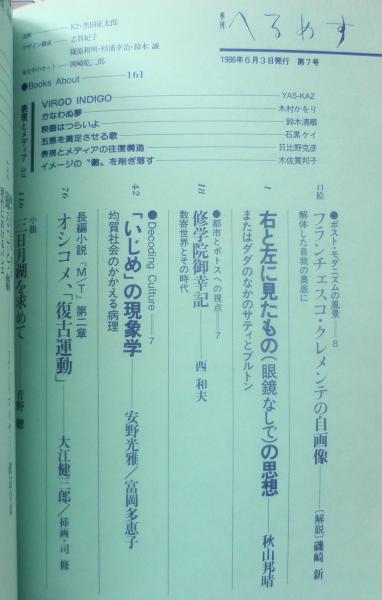 季刊
へるめす
1986年6月3日発行　第7号
口絵
●ポスト・モダニズムの風景——8
フランチェスコ・クレメンテの自画像——［解説］磯崎 新
解体した自我の奥底に
1
右と左に見たもの（眼鏡なしで）の思想——秋山邦晴
またはダダのなかのサティとブルトン
●都市とトポスへの視点——7
18
修学院御幸記——西 和夫
数寄世界とその時代
●Decoding Culture——7
42
「いじめ」の現象学——安野光雅／富岡多恵子
均質社会のかかえる病理
長編小説『M/T』第二章
76
オシコメ、「復古運動」——大江健三郎／挿画・司 修
小説
116
三日月湖を求めて——青野 聰
表現とメディア 33
VIRGO INDIGO　YAS-KAZ
かなわぬ夢　木村かをり
映画はつらいよ　鈴木清順
五感を満足させる歌　石黒ケイ
表現とメディアの往復構造　日比野克彦
イメージの〝鬱〟を削ぎ落す　木佐貫邦子
●Books About——161
表紙——K2・黒田征太郎
デザイン構成——志賀紀子
篠原和明・杉浦幸治・鈴木 誠
本文中のカット——岡崎乾二郎